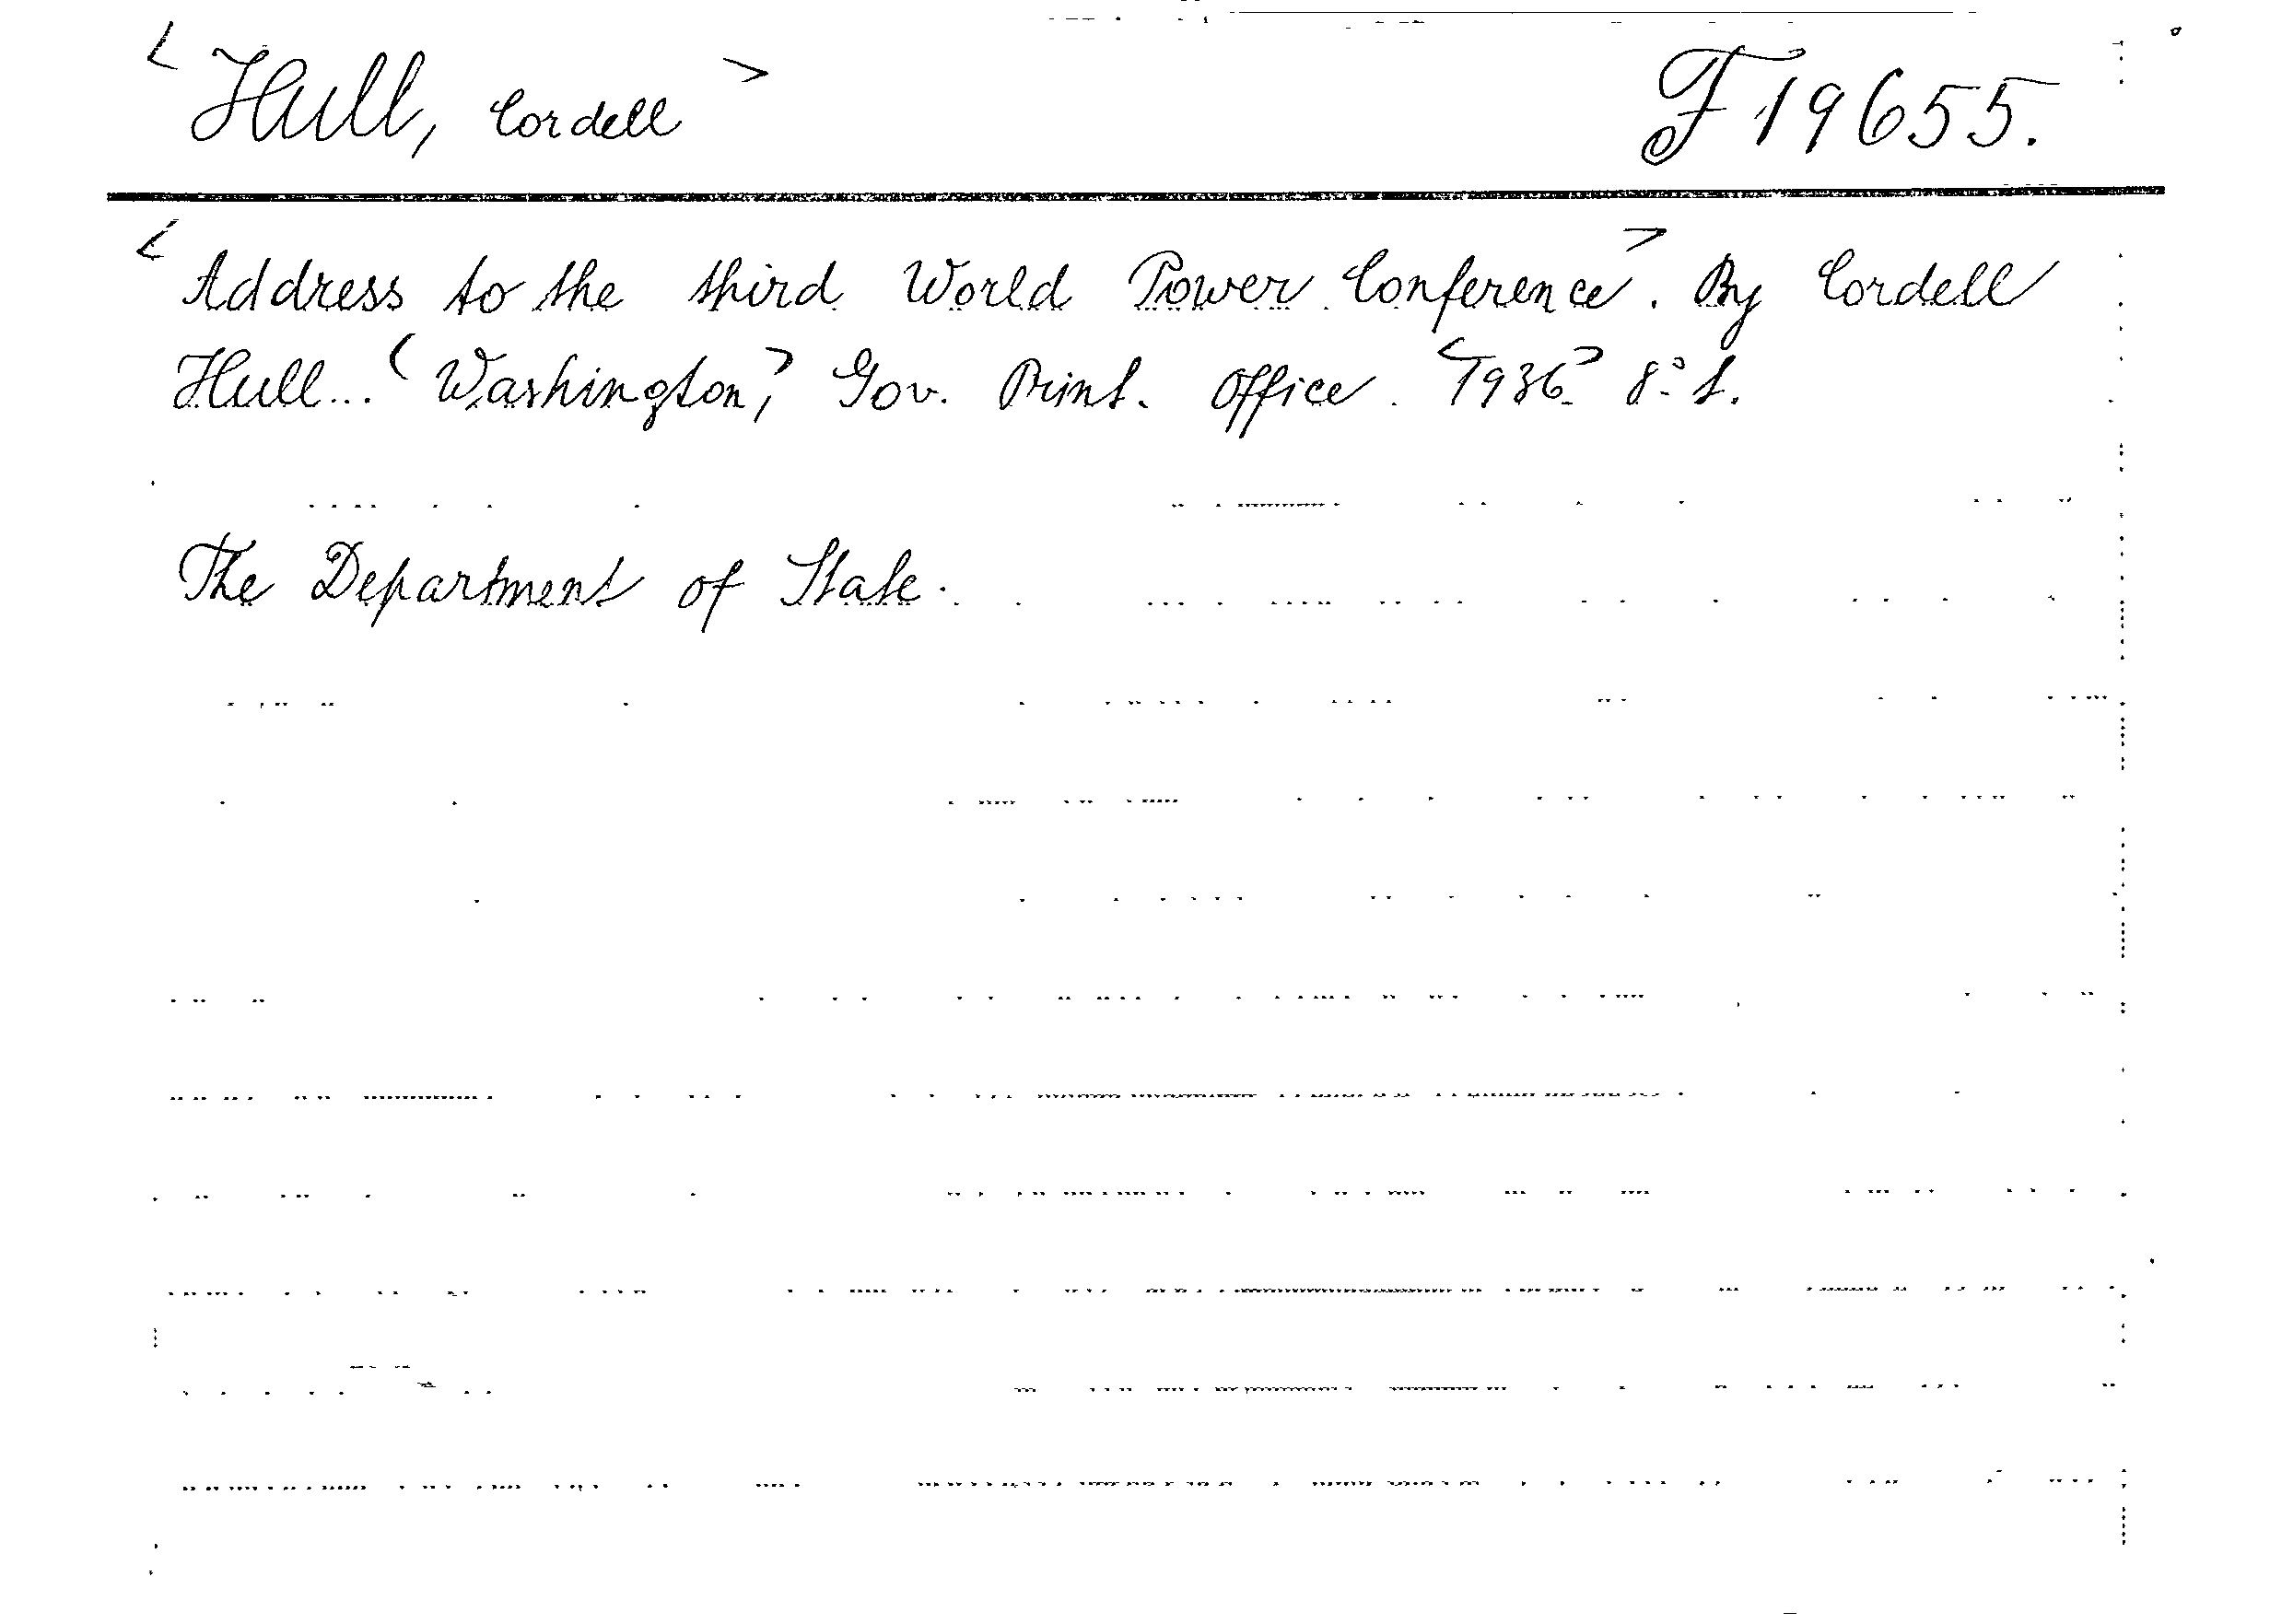 <Hull, Cordell> F 19655.
<Address to the third World Power Conference>. By Cordell
Hull... <Washington,> Gov. Print. Office. <1936> 8° l.
The Department of State.